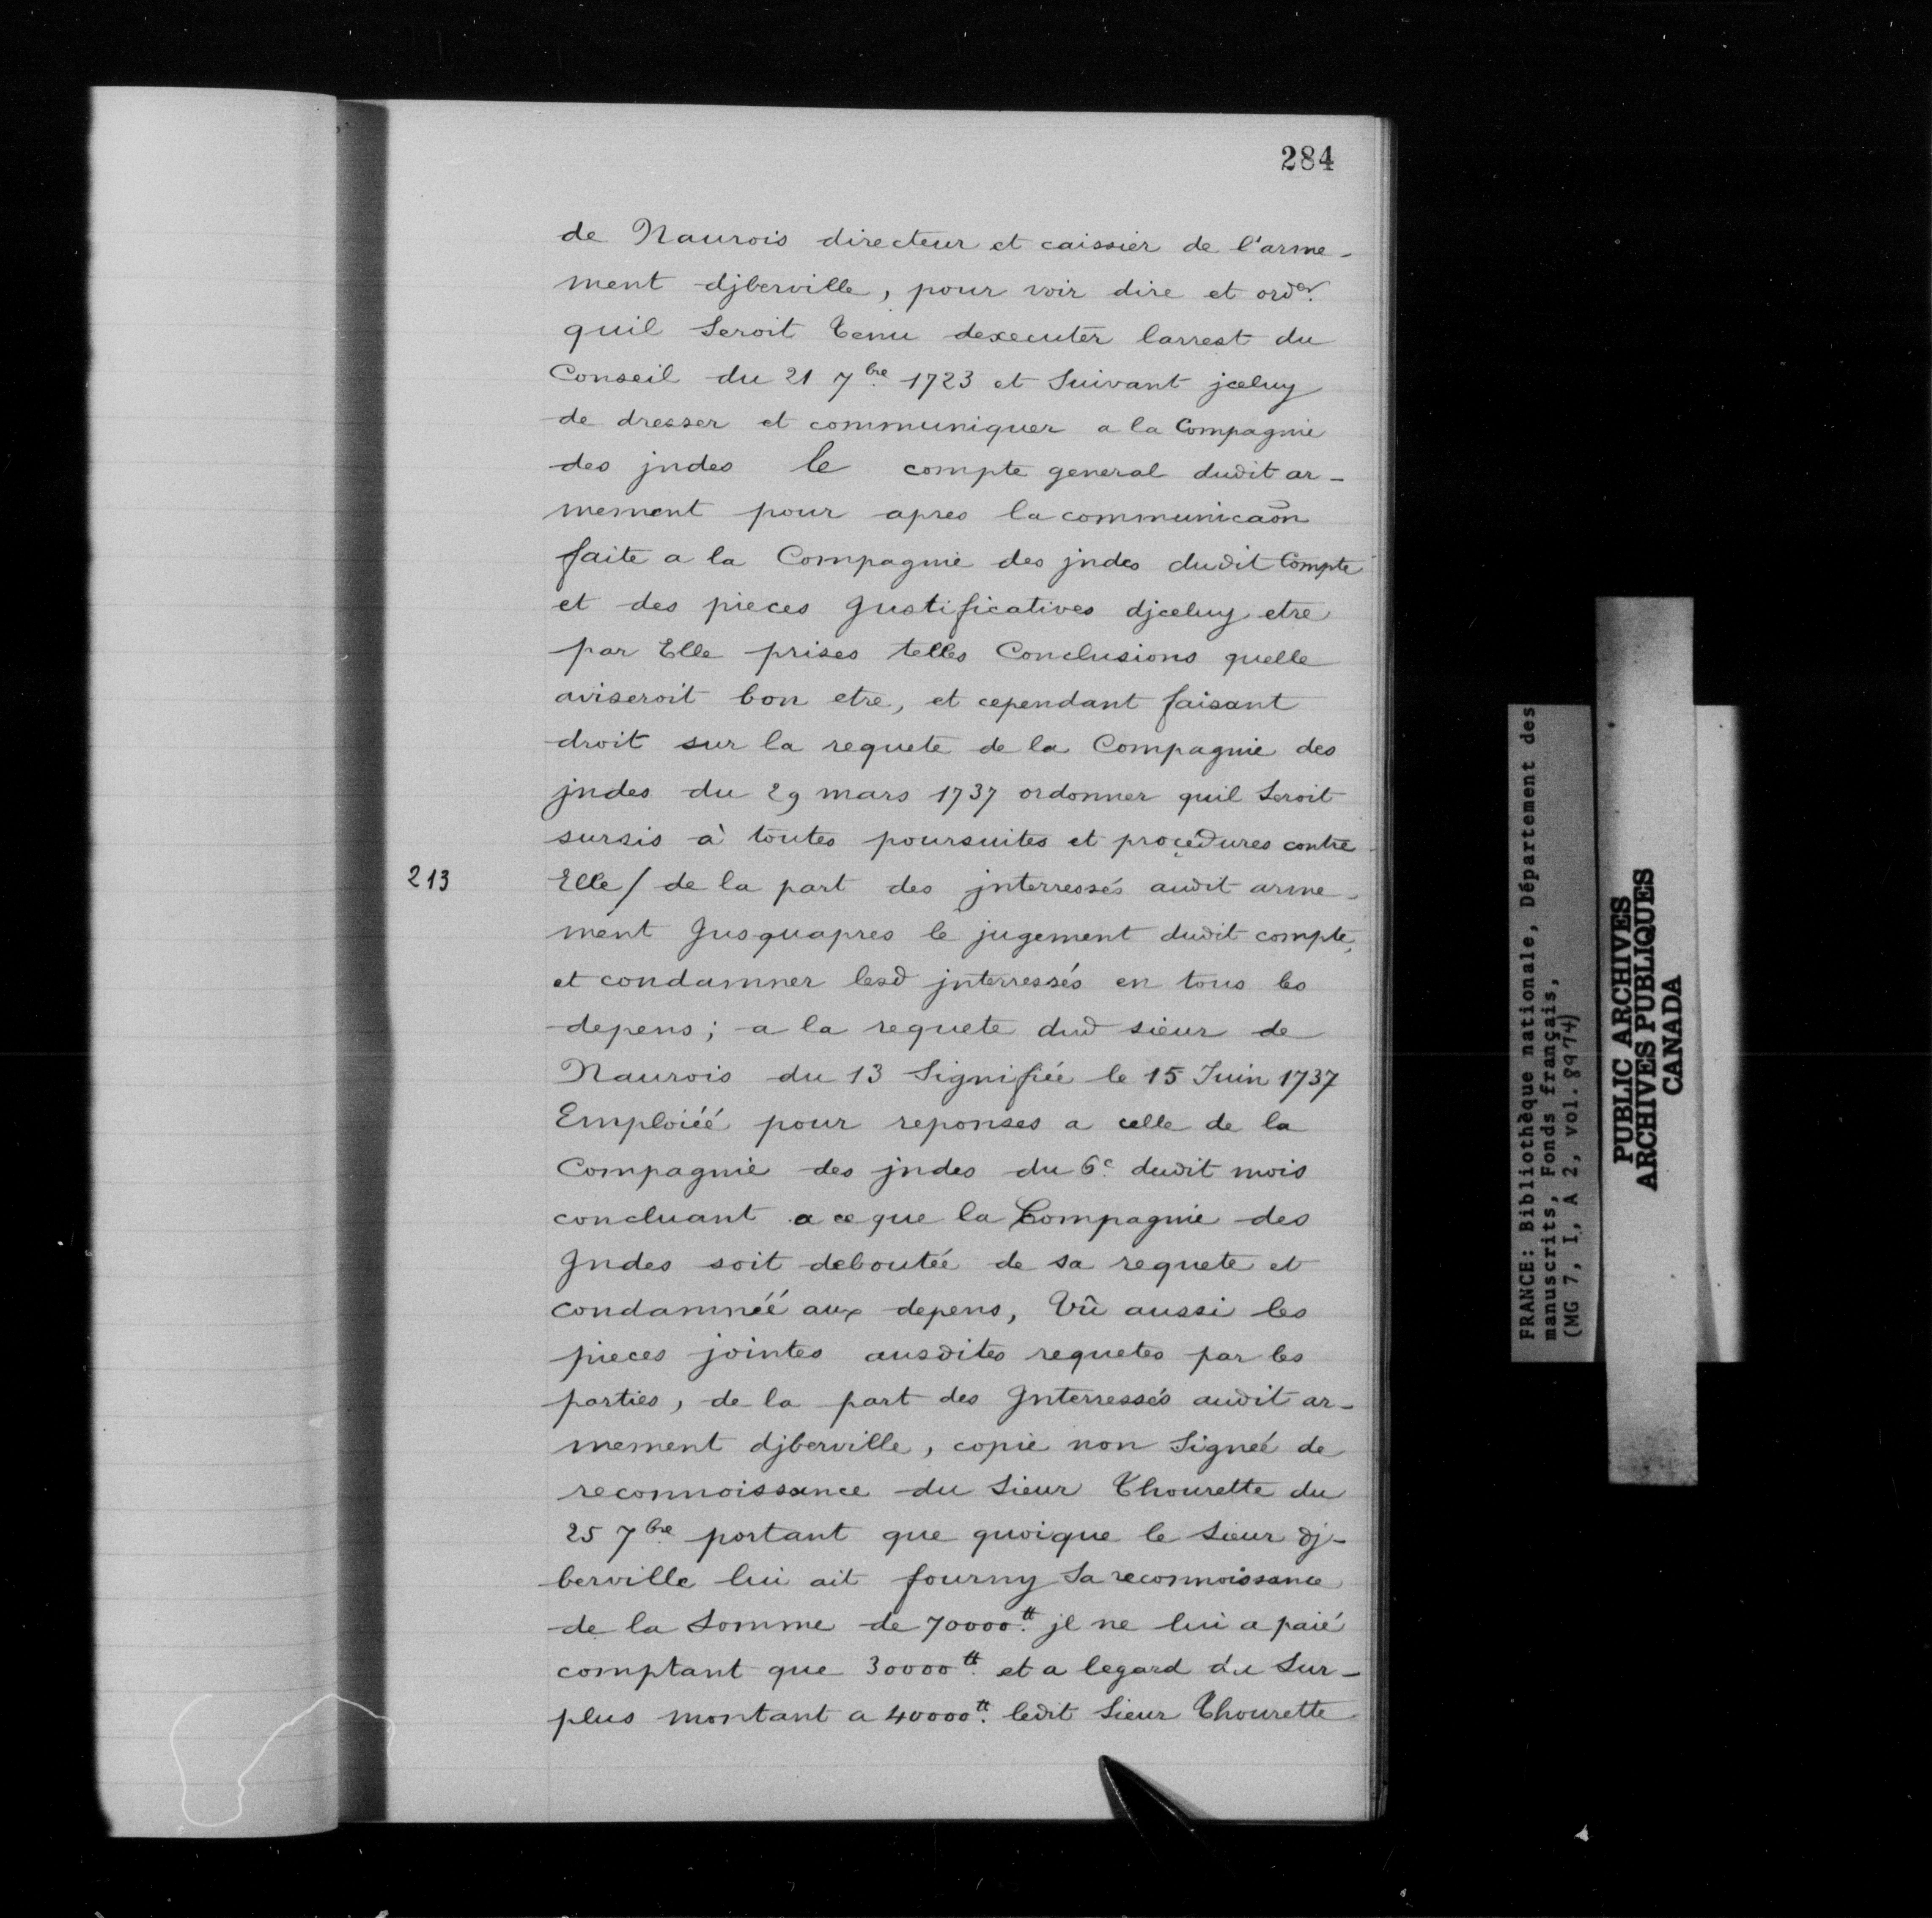 284
de Naurois directeur et caissier de l'arme-
ment djberville, pour voir dire et ord.er
quil Seroit tenu dexecuter larrest du
Conseil du 21 7.bre 1723 et Suivant jceluy
de dresser et communiquer a la Compagnie
des jndes le compte general dudit ar-
mement pour apres la communicaõn
faite a la Compagnie des jndes dudit Compte
et des pieces Justificatives djceluy etre
par Elle prises telles Conclusions quelle
aviseroit bon etre, et cependant faisant
droit sur la requete de la Compagnie des
jndes du 29 mars 1737 ordonner quil Seroit
sursis à toutes poursuites et proçedures contre
213 Elle / de la part des jnterressés audit arme-
ment Jusquapres le jugement dudit compte,
et condamner lesd jnterressés en tous les
depens; a la requete dud sieur de
Naurois du 13 Signifiée le 15 Juin 1737
Emploiéé pour reponses a celle de la
Compagnie des jndes du 6.e dudit mois
concluant a ce que la Compagnie des
Jndes soit deboutée de sa requete et
condamnéé aux depens, Vû aussi les
pieces jointes ausdites requetes par les
parties, de la part des Jnterressés audit ar-
mement djberville, copie non Signeé de
reconnoissance du Sieur Thourette du
25 7.bre portant que quoique le Sieur dj-
berville lui ait fourny Sa reconnoissance
de la Somme de 70000.tt jl ne lui a paié
comptant que 30000.tt et a legard du Sur-
plus montant a 40000.tt ledit Sieur Thourette
FRANCE: Bibliothèque nationale, Département des
manuscrits, Fonds français,
(MG 7, I, A 2, vol. 8974)
PUBLIC ARCHIVES
ARCHIVES PUBLIQUES
CANADA